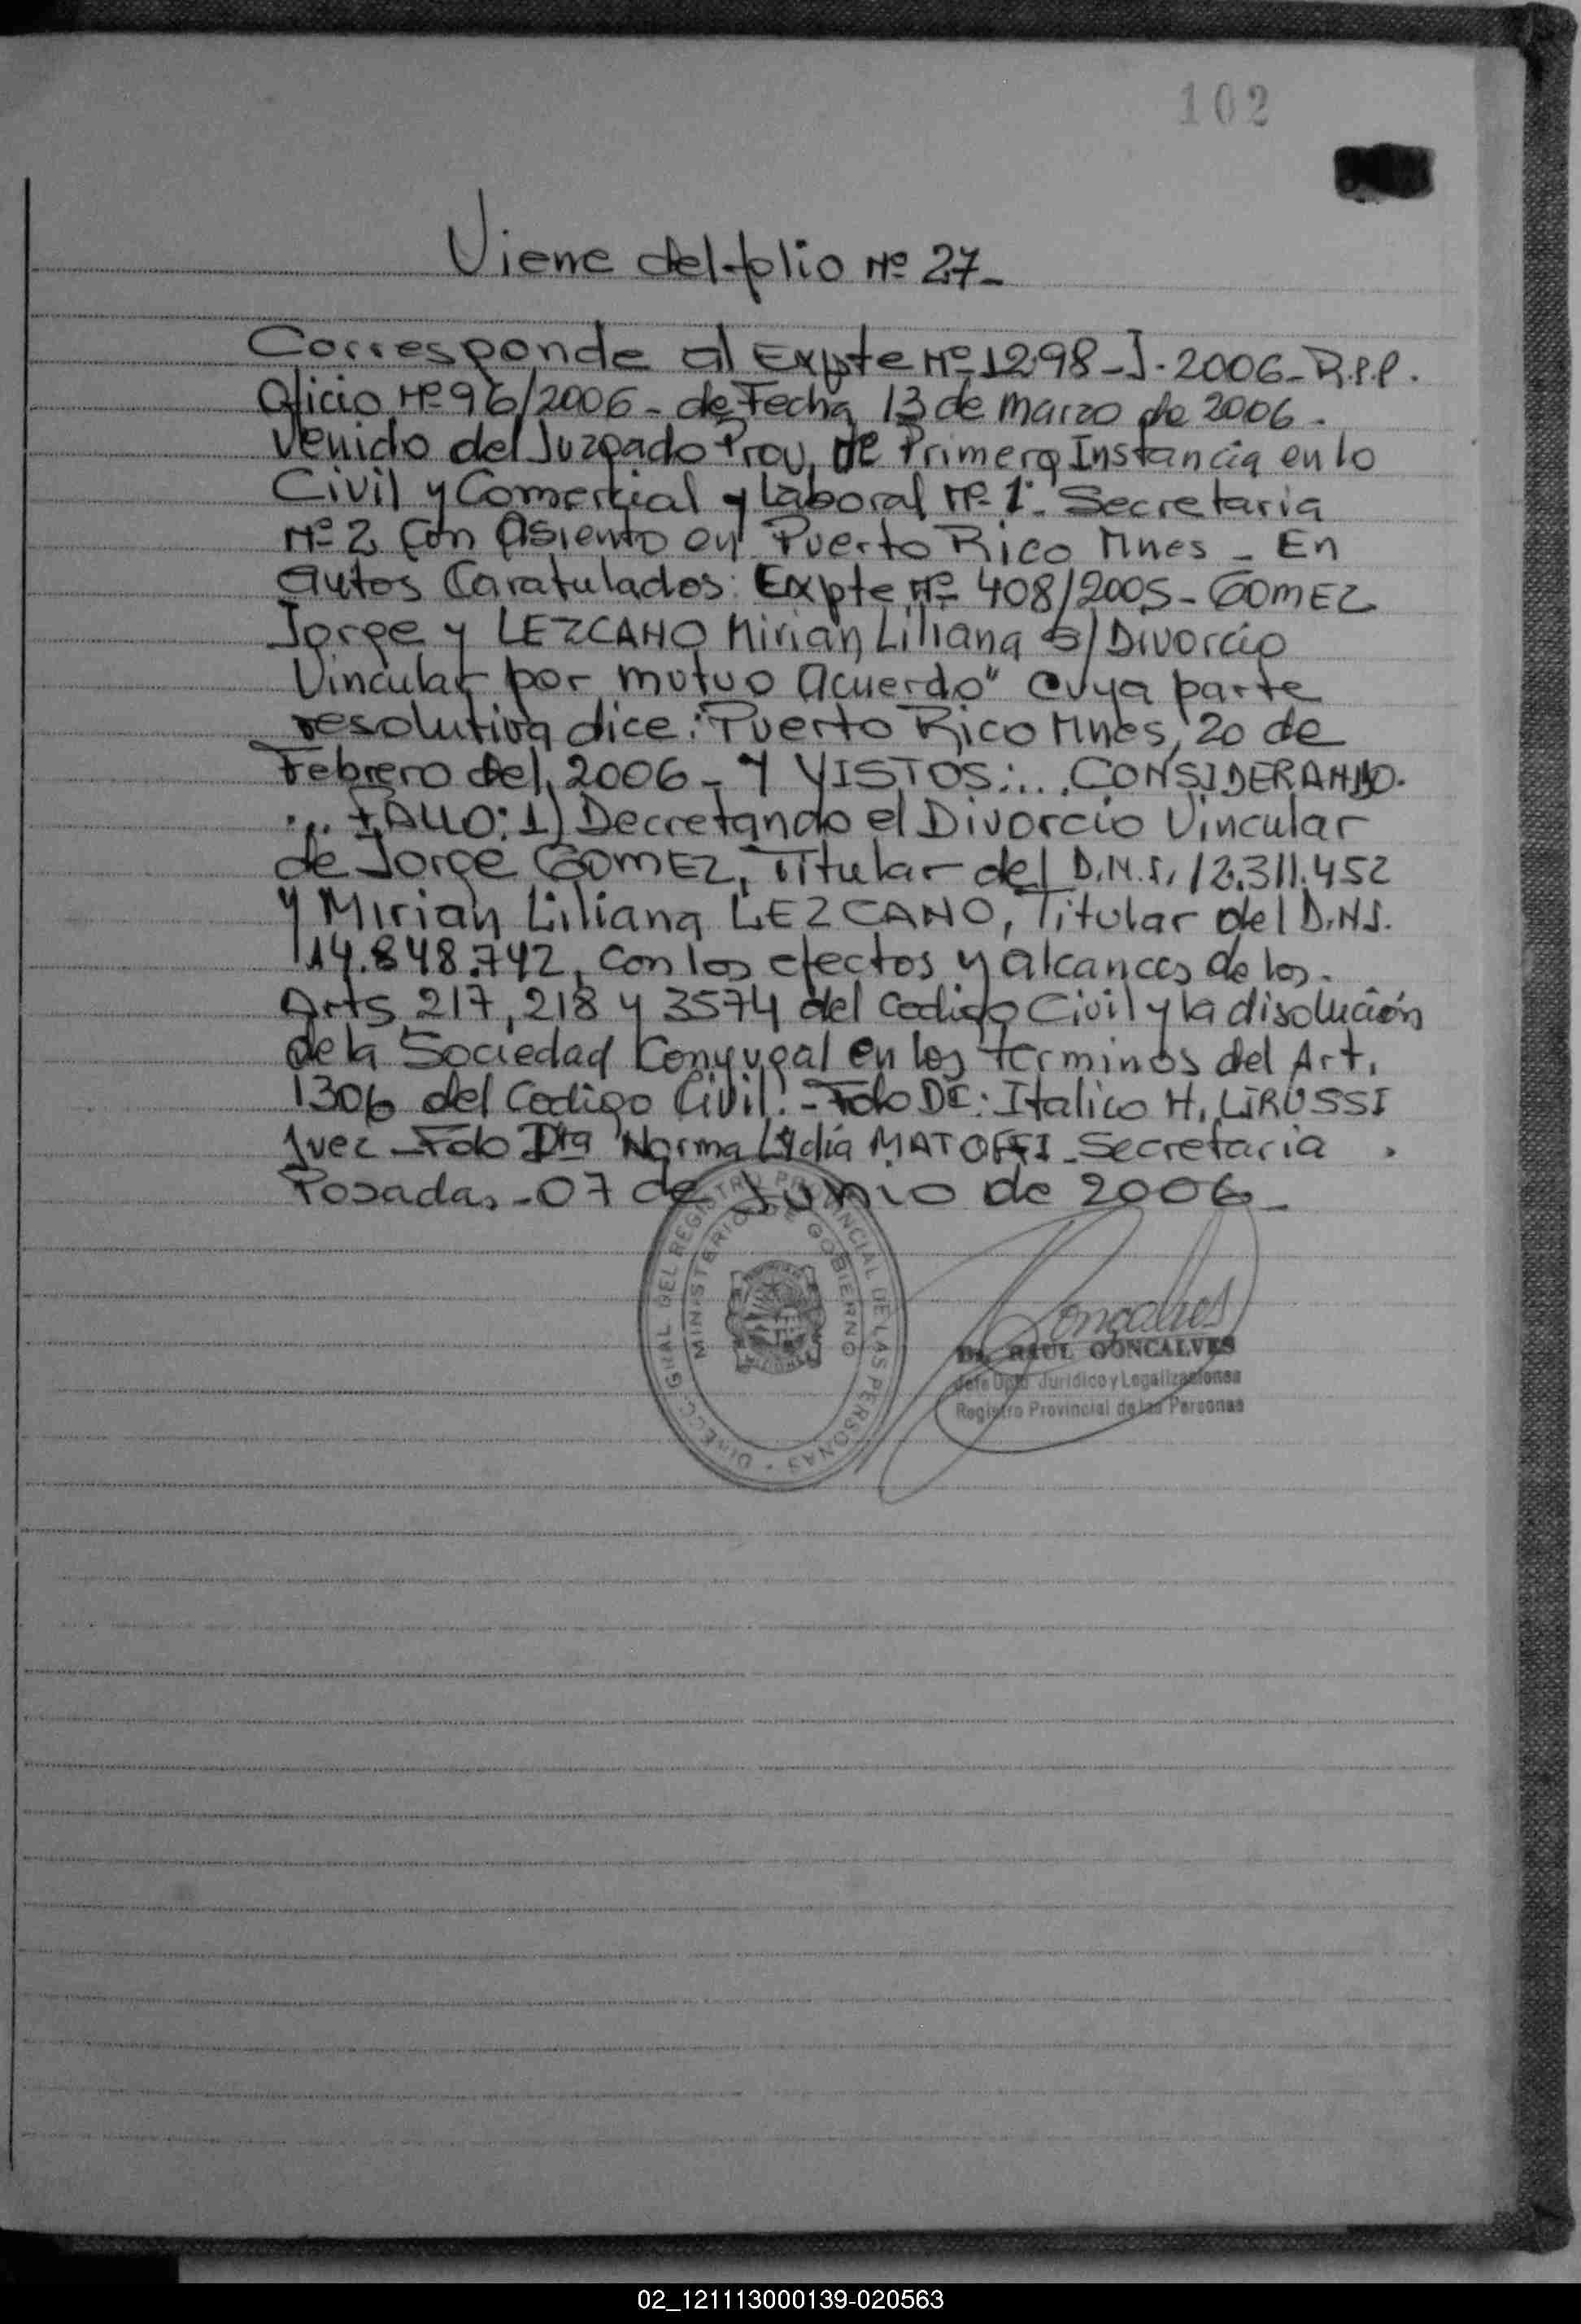 102
Viene del folio Nº 27-
Corresponde al Expte Nº 1298-J-2006-R.P.P.
Oficio Nº 96/2006- de Fecha 13 de Marzo de 2006-
venido del Juzgado Prov. de Primera Instancia en lo
Civil y Comercial y Laboral Nº 1- Secretaria
Nº 2 con Asiento en Puerto Rico Mnes - En
autos Caratulados: Expte Nº 408/2005- GOMEZ
Jorge y LEZCANO Mirian Liliana S/ Divorcio
Vincular por mutuo acuerdo" cuya parte
resolutiva dice: "Puerto Rico Mnes, 20 de
Febrero del 2006- Y VISTOS:.... CONSIDERANDO.
... FALLO: 1) Decretando el Divorcio Vincular
de Jorge GOMEZ, Titular del D.N.I. 12.311.452
y Mirian Liliana LEZCANO, Titular del D.N.I.
14.848.742, con los efectos y alcances de los.
Arts 217, 218 y 3574 del Codigo Civil y la disolución
de la Sociedad Conyugal en los terminos del Art.
1306 del Codigo Civil."- Fdo Dr: Italico H. LIRUSSI
Juez - Fdo Dra Norma Lydia MATOFFI - Secretaria.
Posadas, -07 de Junio de 2006-
DIRECC. GRAL DEL REGISTRO PROVINCIAL DE LAS PERSONAS
MINISTERIO DE GOBIERNO
Goncalves
Dr. RAUL GONCALVES
Jefe Dpto Jurídico y Legalizaciones
Registro Provincial de las Personas
02_121113000139-020563